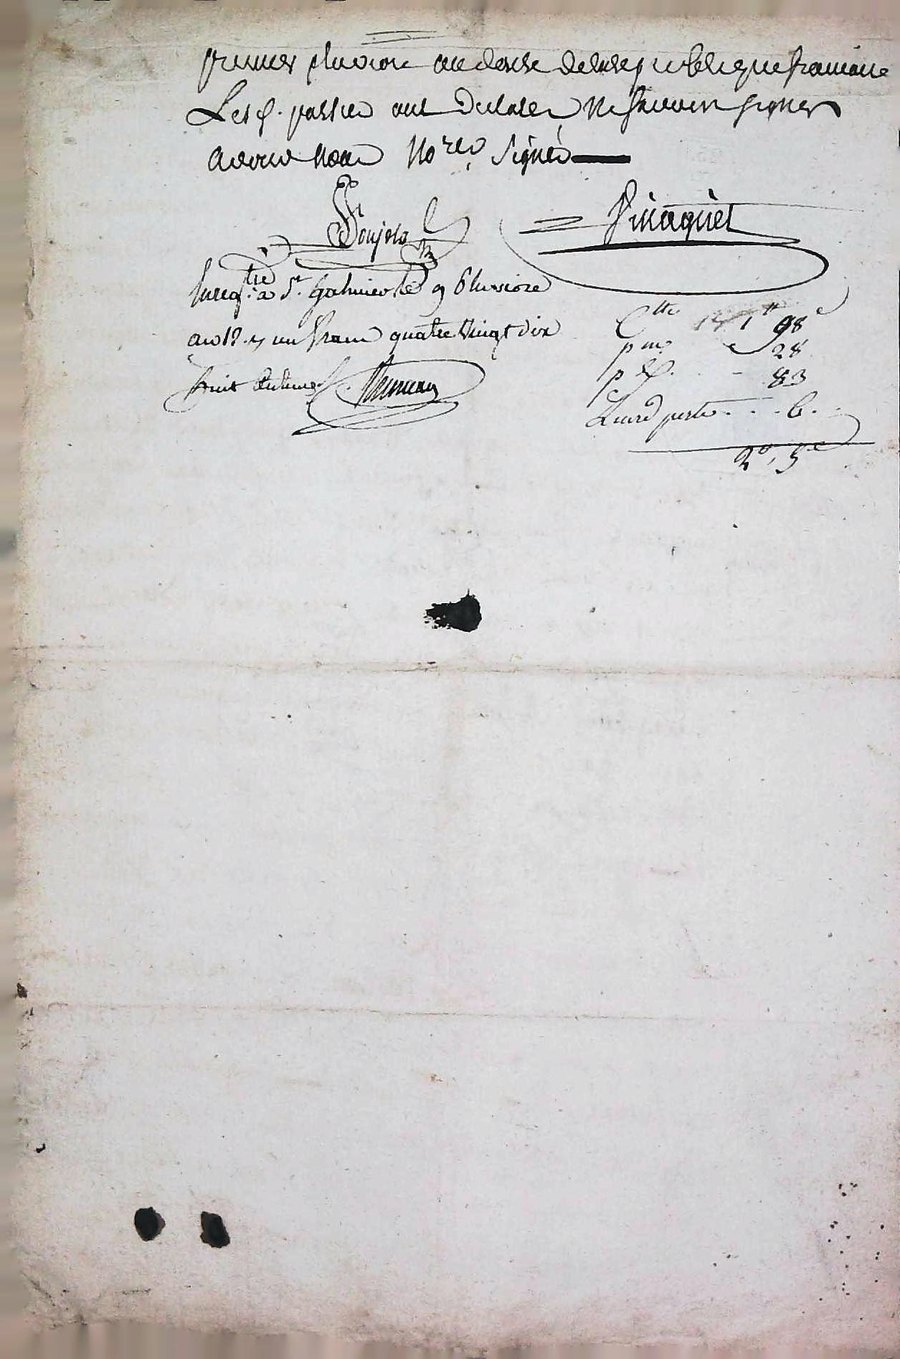 premier pluviose an douse de la republique francaise
Les d. parties ont declaré ne savoir signer
avons nous No.res signés
Pinaquet
Enreg.tré à S.t Galmier le 9 Pluviose
an 12. un franc quatre vingt dix
huit centimes.
C.tte 1 98 c
p m. 28
p 83
6.
2 5 c